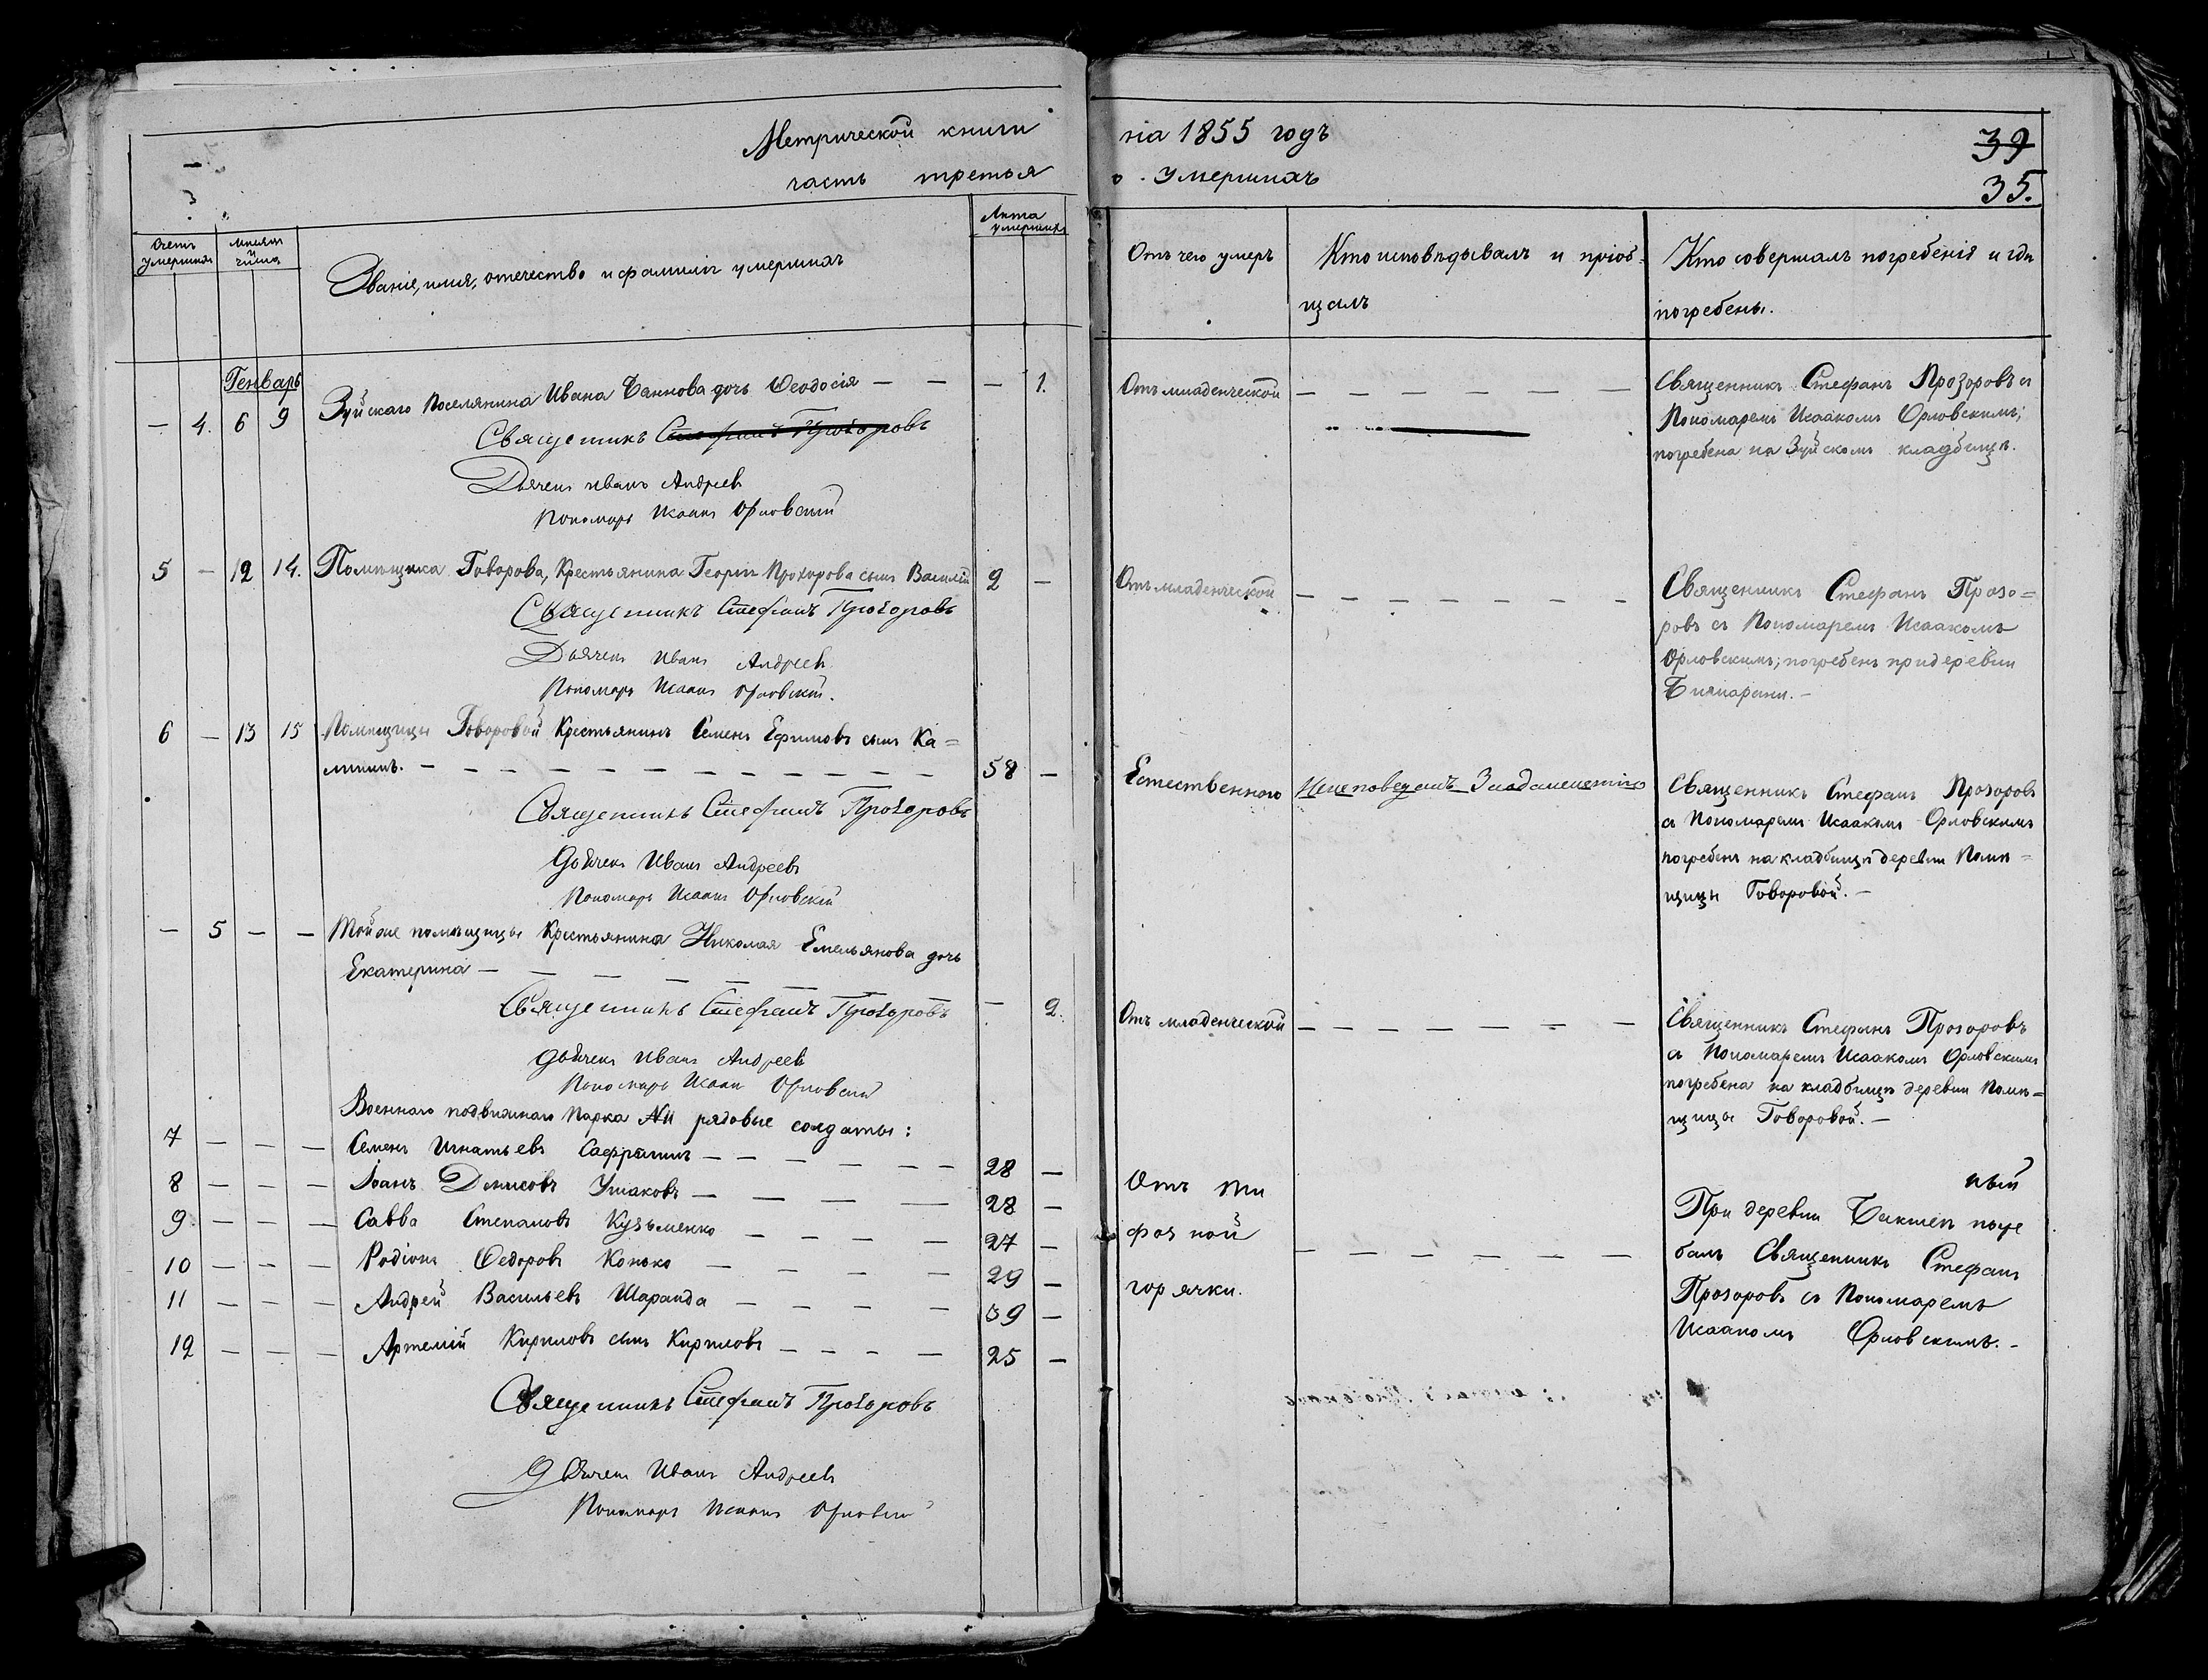 Метрической книги
часть третья
на 1855 годъ
о умершихъ
39
35.
Счетъ умершихъ
Мѣсяцъ и числа
Званіе, имя, отечество и фамилія умершихъ
Лѣта умершихъ
Отъ чего умеръ
Кто исповѣдывалъ и пріоб-
щалъ
Кто совершалъ погребеніе и гдѣ
погребены.
Генварь
— 4. 6 9 Зуйскаго Поселянина Ивана дочь Ѳеодосія — — — 1.
Священникъ Стефанъ Прозоровъ
Дьячекъ Иванъ Андреевъ
Пономарь Исаакъ Орловскій
Отъ младенческой — — — — —
Священникъ Стефанъ Прозоровъ съ
Пономаремъ Исаакомъ Орловскимъ;
погребена на Зуйскомъ кладбищѣ.
5 — 12 14. Помѣщика Говорова, Крестьянина Георгія Прохорова сынъ Василій 2 —
Священникъ Стефанъ Прозоровъ
Дьячекъ Иванъ Андреевъ
Пономарь Исаакъ Орловскій.
Отъ младенческой — — — — — — —
Священникъ Стефанъ Прозо=
ровъ съ Пономаремъ Исаакомъ
Орловскимъ; погребенъ при деревни
6 — 13 15 Помѣщицы Говоровой Крестьянинъ Семенъ Ефимовъ сынъ Ка=
лининъ. — — — — — — — — — — — — 58 —
Священникъ Стефанъ Прозоровъ
Дьячекъ Иванъ Андреевъ
Пономарь Исаакъ Орловскій
Естественного
Священникъ Стефанъ Прозоровъ
съ Пономаремъ Исаакомъ Орловскимъ
погребенъ на кладбищѣ деревни Помѣ=
щицы Говоровой. —
— 5 — — Той же помѣщицы Крестьянина Николая Емельянова дочь
Екатерина — — — — — — — 2.
Священникъ Стефанъ Прозоровъ
Дьячекъ Иванъ Андреевъ
Пономарь Исаакъ Орловскій
Отъ младенческой — — — — — — —
Священникъ Стефанъ Прозоровъ
съ Пономаремъ Исаакомъ Орловскимъ
погребена на кладбищѣ деревни Помѣ=
щицы Говоровой. —
Военнаго подвижнаго Парка рядовые солдаты:
7 — — — Семенъ Игнатьевъ — — — — — — 28 —
8 — — — Іоанъ Денисовъ Ушаковъ — — — — 28 —
9 — — — Савва Степановъ Кузьменко — — — — 27 —
10 — — — Родіонъ Ѳедоровъ Коноко — — — — 29 —
11 — — — Андрей Васильевъ Шаранда — — — — 39 —
12 — — — Артемій Кириловъ сынъ Кириловъ — — — — 25 —
Священникъ Стефанъ Прозоровъ
Дьячекъ Иванъ Андреевъ
Пономарь Исаакъ Орловскій
Отъ ти
фозной
горячки.
— — — — — — —
При деревни погре
балъ Священникъ Стефанъ
Прозоровъ съ Пономаремъ
Исаакомъ Орловскимъ. —